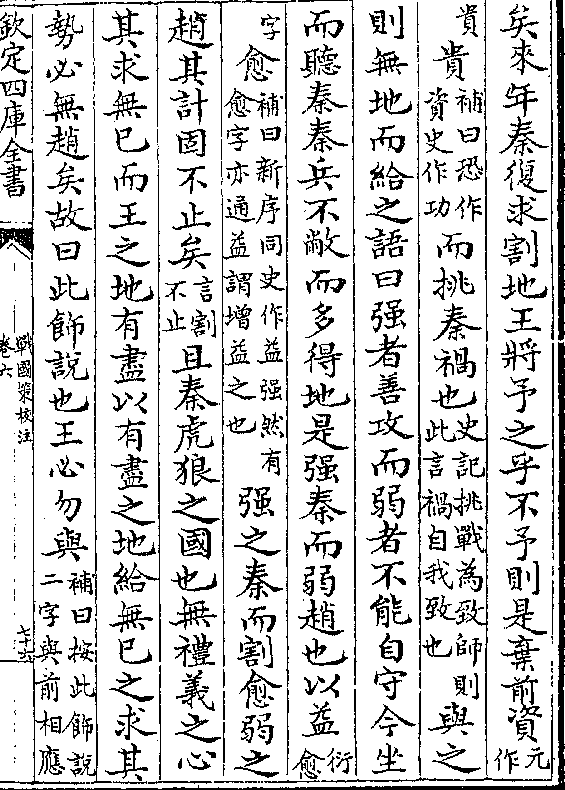 矣來年秦復求割地王將予之乎不予則是棄前資元作
貴貴補曰恐作資史作功而挑秦禍也史記挑戰為致師則此言禍自我致也與之
則無地而給之語曰强者善攻而弱者不能自守今坐
而聽秦秦兵不敝而多得地是强秦而弱趙也以益衍愈
字愈補曰新序同史作益强然有愈字亦通益謂增益之也强之秦而割愈弱之
趙其計固不止矣言割不止且秦虎狼之國也無禮義之心
其求無已而王之地有盡以有盡之地給無已之求其
勢必無趙矣故曰此飾說也王必勿與補曰按此飾說二字與前相應
欽定四庫全書
戰國策校注
卷六